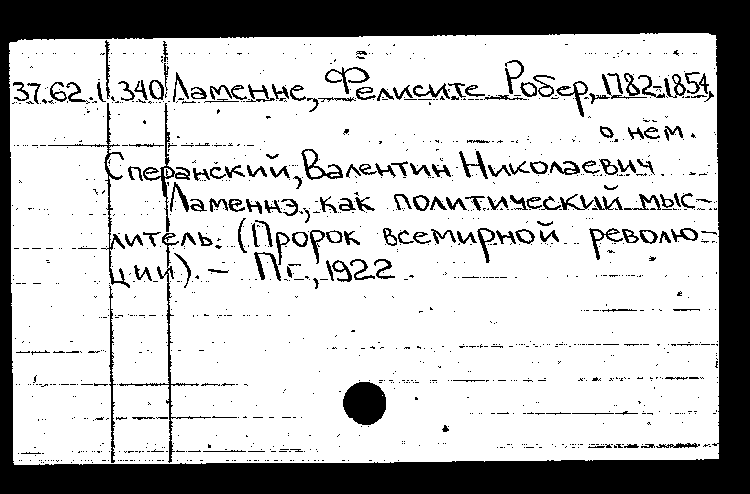 37.62.1.340 Ламенне, Фелисите Робер, 1782-1854,
о нём.
Сперанский, Валентин Николаевич
Ламеннэ, как политический мыс-
литель. (Пророк всемирной револю-
ции). – Пг., 1922.